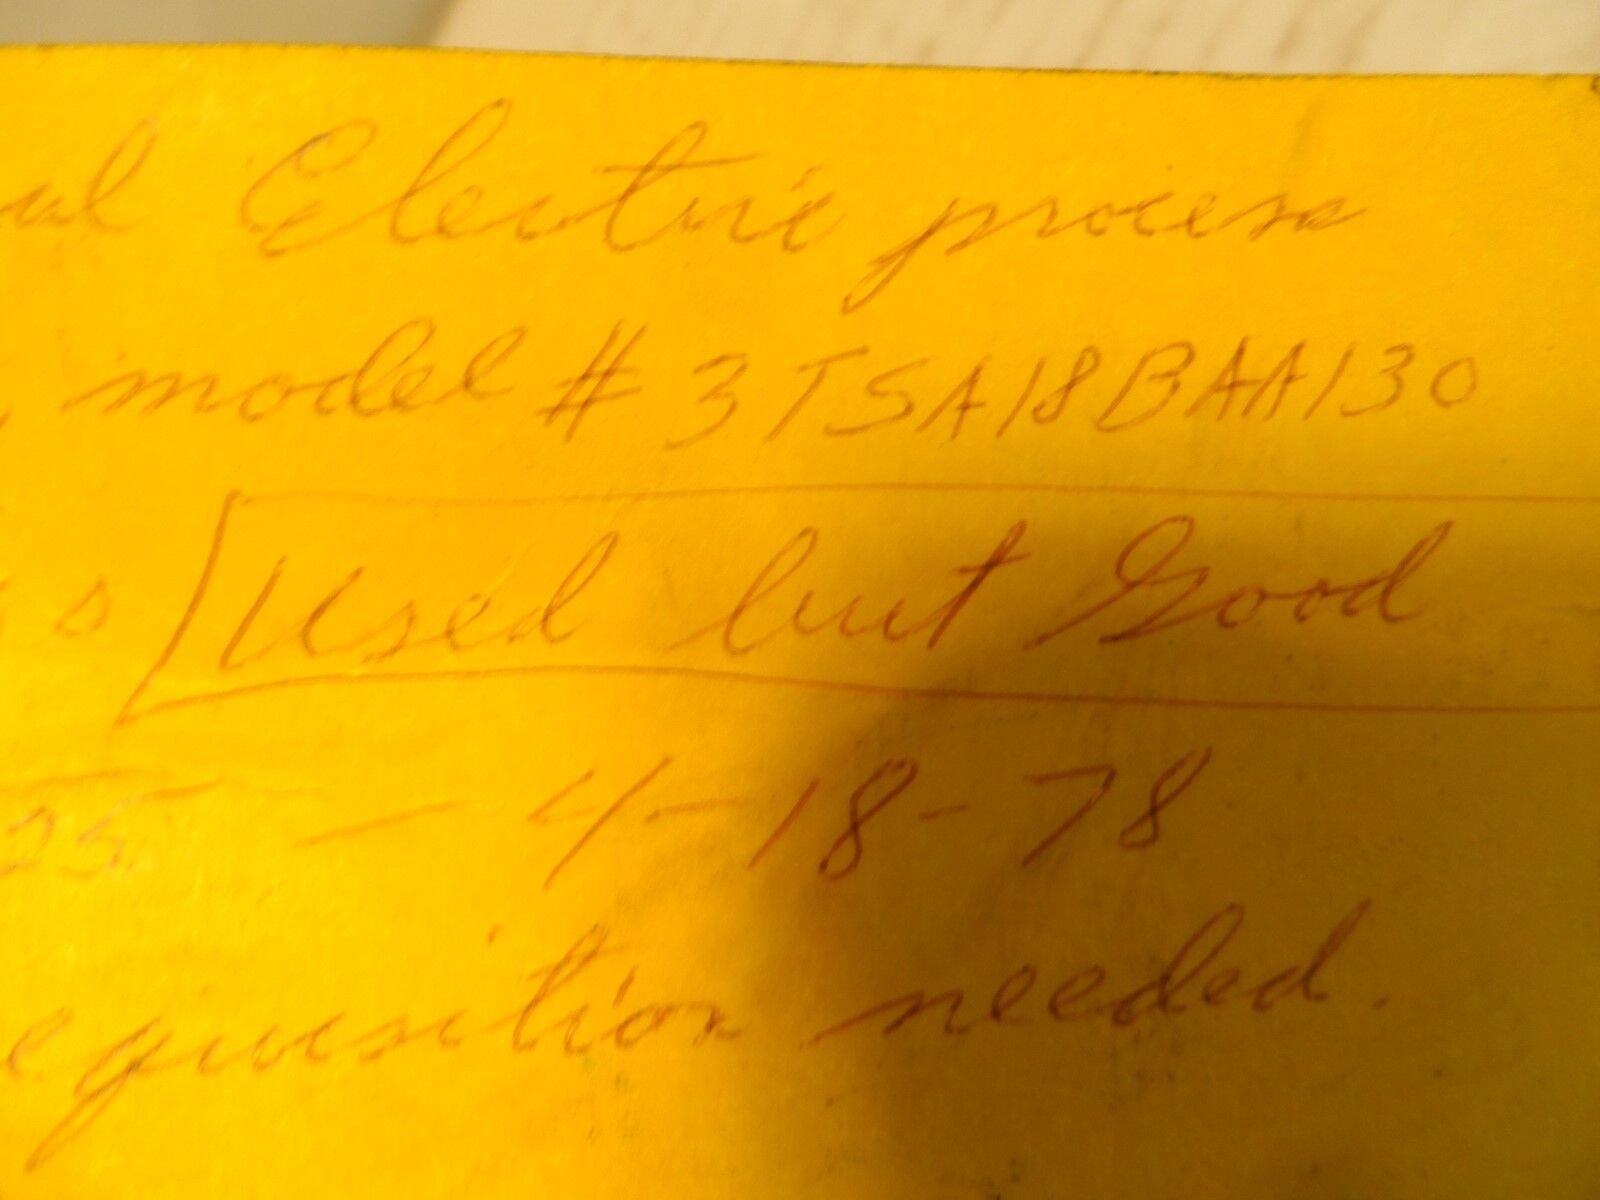 al Electric process
, model # 3TSA18BAA130
s Used but Good
25 - 4-18-78
equisition needed.